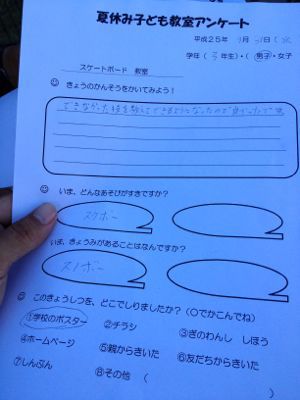 夏休み子ども教室アンケート
平成25年 月 日(
学年( 年生)・(男子・女子
スケートボード 教室
☺ きょうのかんそうをかいてみよう！
できなかった技を教えてできるようになったので
☺ いま、どんなあそびがすきですか？
スケボー
いま、きょうみがあることはなんですか？
スノボー
☺ このきょうしつを、どこでしりましたか？（○でかこんでね）
①学校のポスター ②チラシ ③ぎのわんし しほう
④ホームページ ⑤親からきいた ⑥友だちからきいた
⑦しんぶん ⑧その他 （ ）